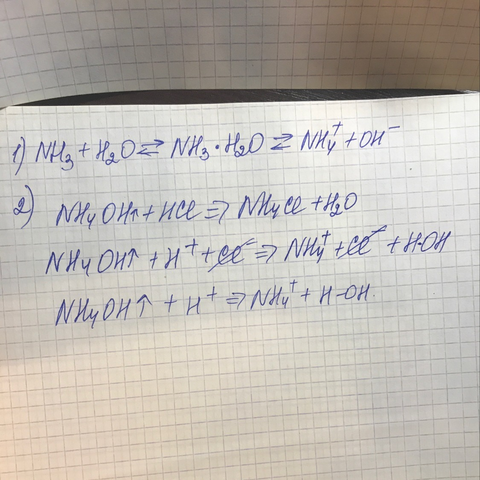 1) NH₃ + H₂O ⇄ NH₃ · H₂O ⇄ NH₄⁺ + OH⁻
2) NH₄OH↑ + HCl ⇒ NH₄Cl + H₂O
NH₄OH↑ + H⁺ + Cl⁻ ⇒ NH₄⁺ + Cl⁻ + H-OH
NH₄OH↑ + H⁺ ⇒ NH₄⁺ + H-OH.